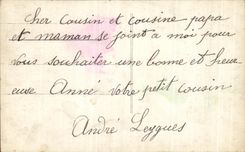 Cher Cousin et Cousine papa
et maman se joint a moi pour
vous souhaiter une bonne et heur
euse Anné votre petit cousin
André Leygues